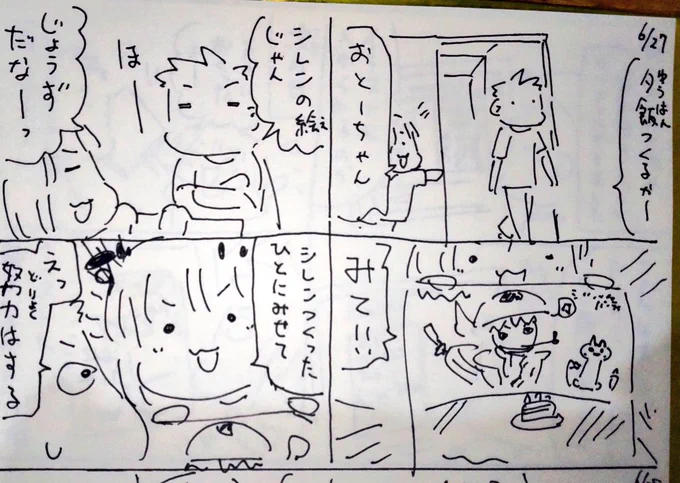 6/27
ゆうはん
夕飯つくるかー
おとーちゃん
みて!!
シレンの絵
え
じゃん
ほー
じょうず
だなーっ
シレンつくった
ひとにみせて
えっ
どりょく
努力はする